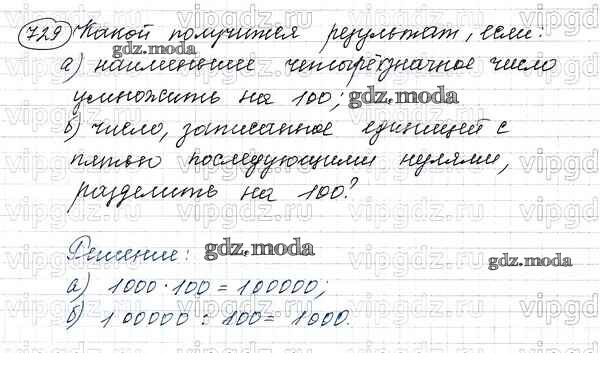 729 Какой получится результат, если:
gdz.moda
а) наименьшее четырёхзначное число
умножить на 100; gdz.moda
б) число, записанное единицей с
пятью последующими нулями,
разделить на 100?
Решение: gdz.moda
gdz.moda
а) 1000 · 100 = 100000;
б) 100000 : 100 = 1000.